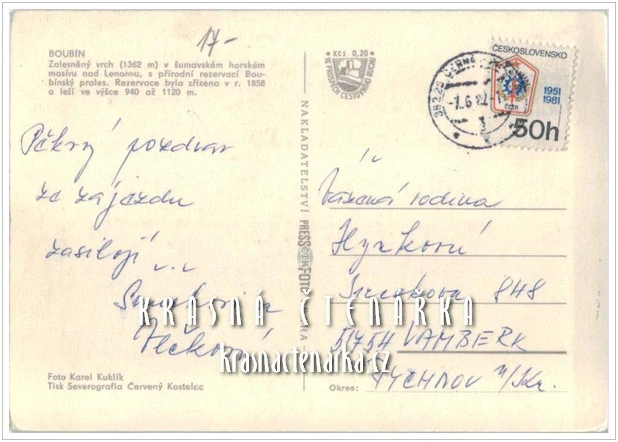 17-
BOUBÍN
Zalesněný vrch (1362 m) v šumavském horském
masívu nad Lenorou, s přírodní rezervací Bou-
bínský prales. Rezervace byla zřízena v r. 1858
a leží ve výšce 940 až 1120 m.
Pěkný pozdrav
ze zájezdu
zasílají
Foto Karel Kuklík
Tisk Severografia Červený Kostelec
Kčs 0,20
NAKLADATELSTVÍ PRESSFOTO
ČESKOSLOVENSKO
1951
1981
50h
38226 ČERNÁ
-7.6.82-
3
Vážená rodina
848
51754 VAMBERK
Okres: RYCHNOV n/Kn.
KRÁSNÁ ČTENÁRKA
krasnactenarka.cz